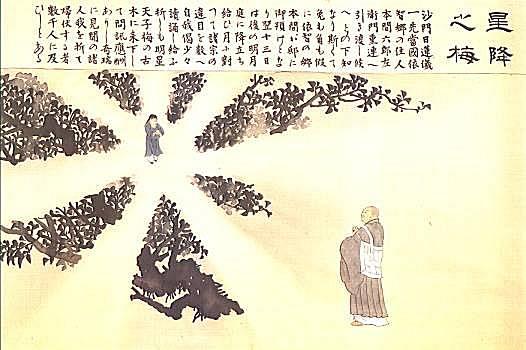 星降
之梅
沙門日蓮儀
一先當國依
智郷の住人
本間六郎左
衛門重連へ
引き渡し候
へとの下知
なり斯くて
兎も角も假
に依智の郷
本間が邸に
御預けとな
り翌十三日
は後の明月
庭に降立ち
給ひ月に對
つて諸宗の
違目を數へ
自我偈少々
讀誦し給ふ
折しも明星
天子梅の古
木に来下し
て問訊應酬
あり奇瑞
に見聞の諸
人我を折て
歸伏する者
數千人に及
びしとある